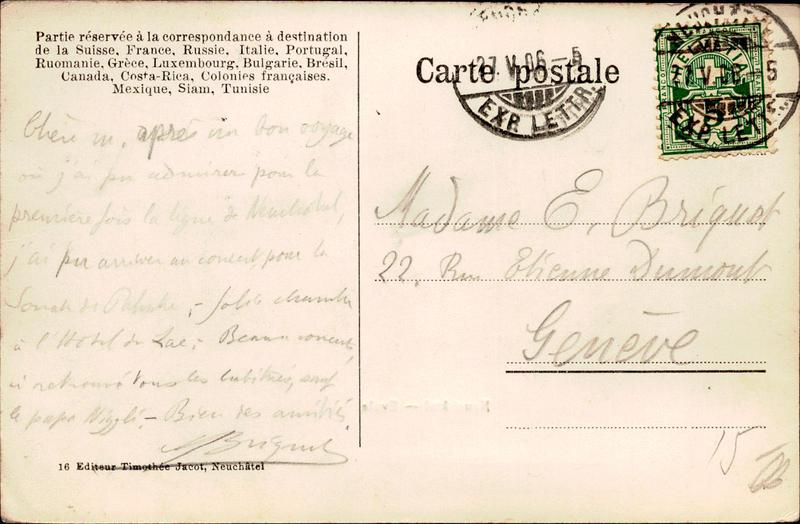 Partie réservée à la correspondance à destination
de la Suisse, France, Russie, Italie, Portugal,
Ruomanie, Grèce, Luxembourg, Bulgarie, Brésil,
Canada, Costa-Rica, Colonies françaises.
Mexique, Siam, Tunisie
Chère m, après un bon voyage
où j'ai pu admirer pour la
première fois la ligne de Neuchâtel,
j'ai pu arriver au concert pour la
Sonate de - Jolie chambre
à l'Hôtel du Lac; - Beau concert,
retrouvé tous les habitués, sauf
le papa Niggli - Bien des amitiés
Briquet
16 Editeur Timothée Jacot, Neuchâtel
Carte postale
27.V.06-5
EXP. LETTR.
HELVETIA
5
27.V.06-5
EXP. LETTR.
Madame E. Briquet
22, Rue Etienne Dumont
Genève
15